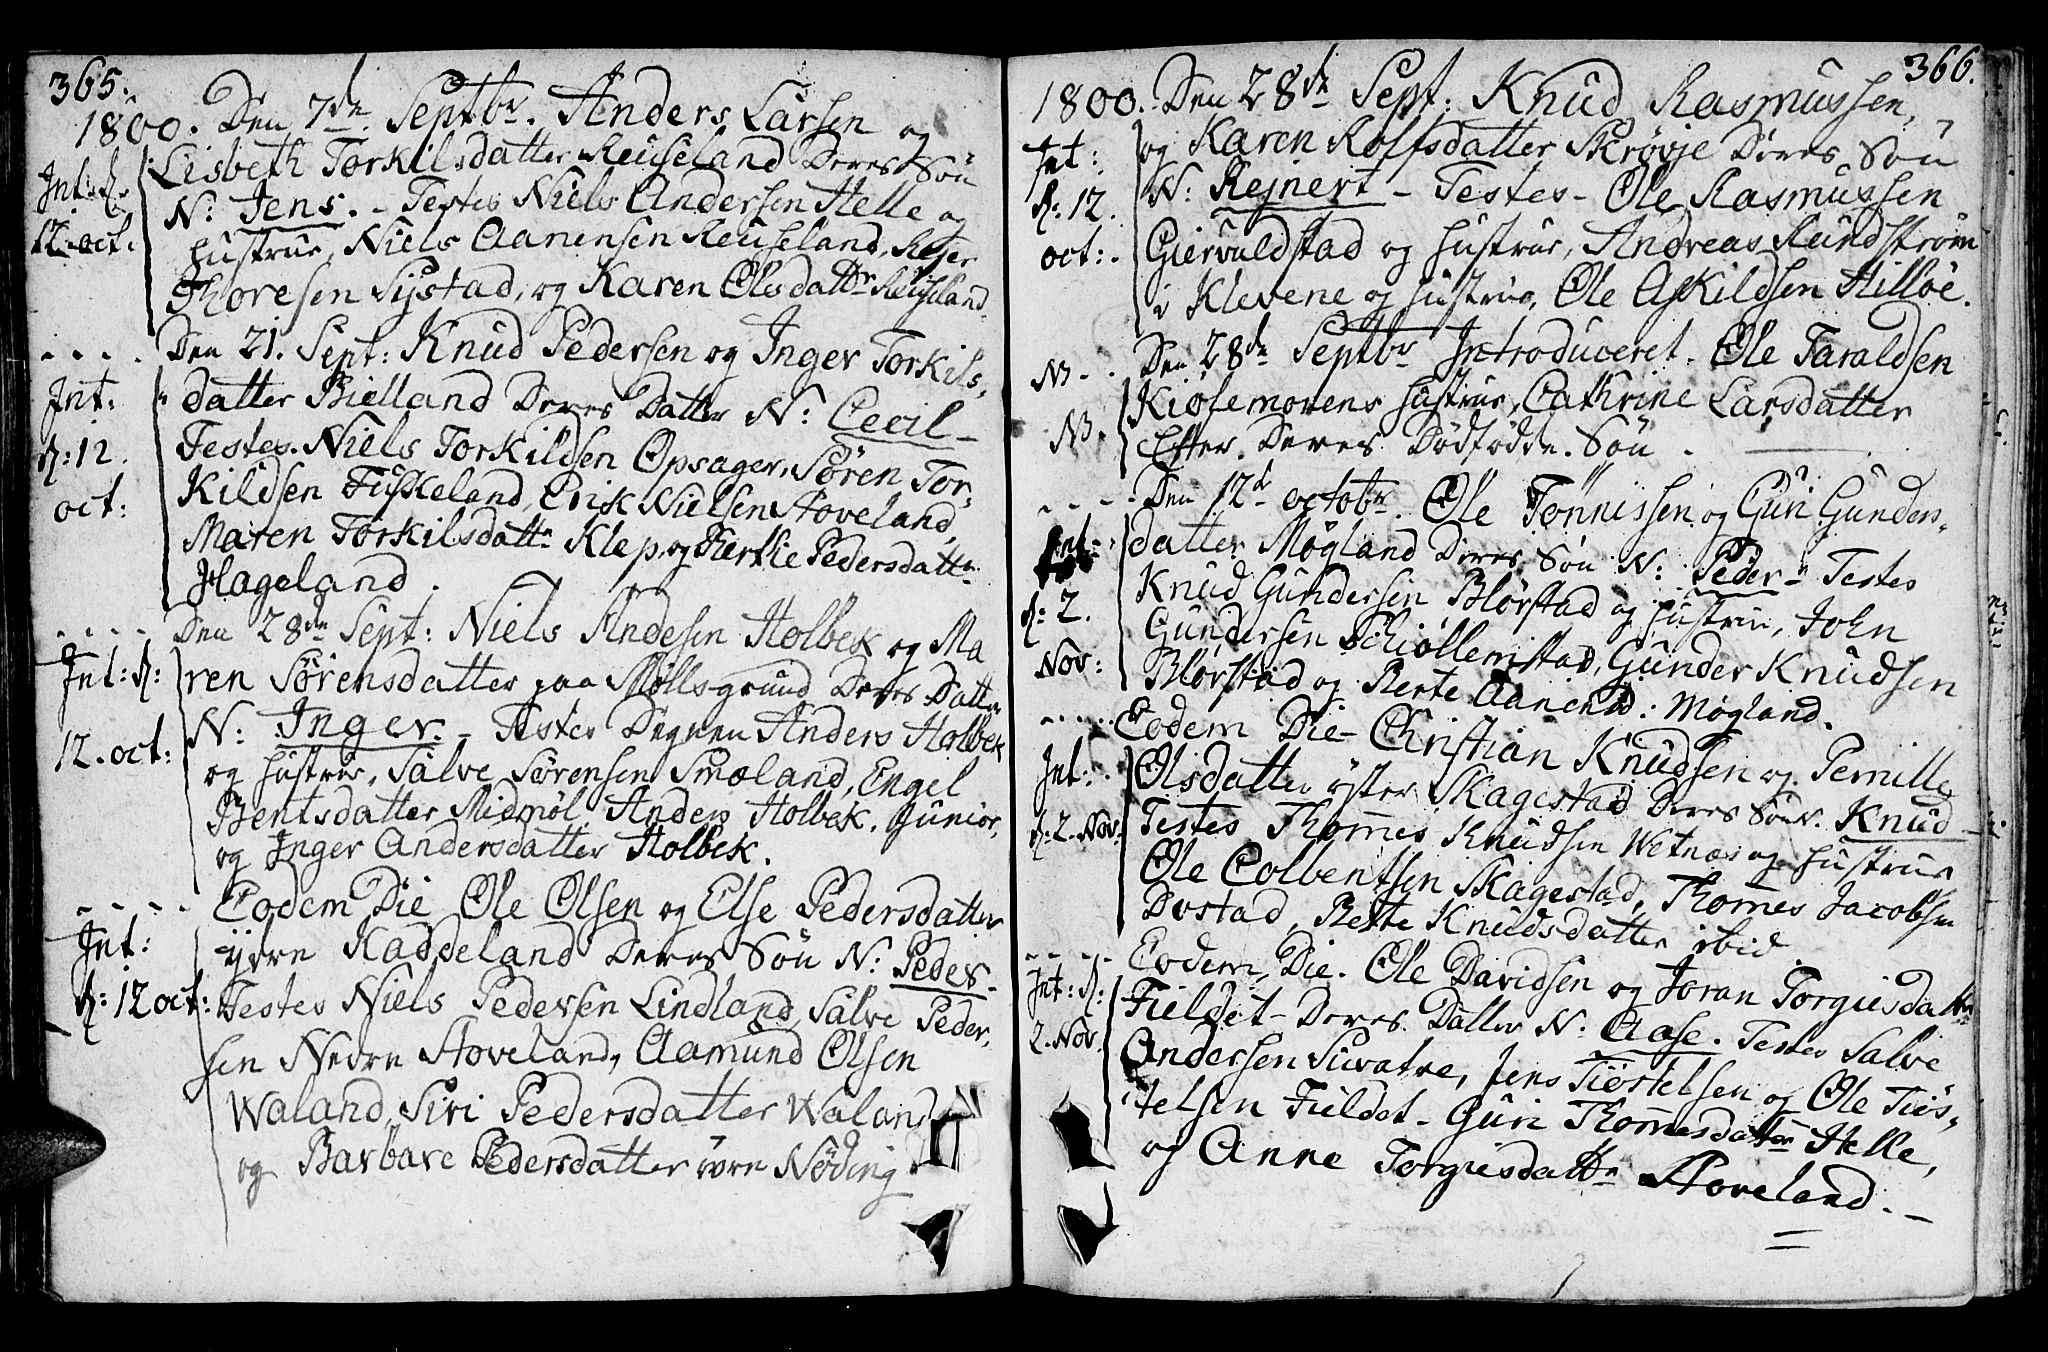 365.
1800. Den 7de Septbr. Anders Larsen og
Lisbeth Torkilsdatter Reuseland Deres Søn
N: Jens. - Testes Niels Andersen Helle og
Hustrue, Niels Aanensen Reuseland, Rejer
Thoresen Systad, og Karen Olsdattr Reuseland.
Int: d:
12. oct.
Den 21. Sept: Knud Pedersen og Inger Torkils,
datter Bielland Deres Datter N: Cecil-
Testes. Niels Torkildsen Opsager, Sören Tor-
Kildsen Fuskeland, Erik Nielsen Stoveland,
Maren Torkilsdattr Klep, og Pedersdattr
Hageland.
Int:
d: 12.
oct:
Den 28de Sept: Niels Andesen Holbek og Ma
ren Sörensdatter paa Mölls-grund Deres Datter
N: Inger. - Testes Degnen Anders Holbek
og Hustrue, Salve Sörensen Smæland, Engel
Bentsdatter Midmöl, Anders Holbek. Junior,
og Inger Andersdatter Holbek.
Int: d:
12. oct:
Eodem Die Ole Olsen og Else Pedersdatter
ydre Kaddeland Deres Søn N: Peder-
Testes Niels Pedersen Lindland, Salve Peder,
sen Nedre Stoveland, Aamund Olsen
Waland, Siri Pedersdatter Waland
og Barbare Pedersdatter övre Nöding
Int:
d: 12 oct:
366.
1800. Den 28de Sept: Knud Rasmussen,
og Karen Rolfsdatter Skrövje Deres Søn
N: Rejnert - Testes - Ole Rasmussen
Giervaldstad og Hustrue, Andreas Rundström
i Klevene og Hustrue, Ole Askildsen Hillöe.
Int:
d: 12.
oct:.
Den 28de Septbr Introduceret. Ole Taraldsen
Kiölemoens Hustrue, Cathrine Larsdatter
Efter Deres Dödfödde. Søn.
NB-.
NB.
Den 12te octobr. Ole Tönnissen og Guri Gunders,
datter Mögland Deres Søn N: Peder - Testes
Knud Gundersen Blörstad og Hustrue, John
Gundersen Schiöllemstad, Gunder Knudsen
Blörstad og Berte Aanensd: Mögland.
Int:
d: 2.
Nov:
Eodem Die - Christian Knudsen og Pernille
Olsdatter öster Skagestad Deres Søn. Knud-
Testes Thommes Knudsen Wetnæs og Hustrue
Ole Colbentsen Skagestad, Thommes Jacobsen
Dustad, Berte Knudsdatter ibid.
Int:.
d: 2. Nov.
Eodem, Die. Ole Davidsen og Joran Torgiusdattr
Fieldet - Deres Datter N: Aase. Testes Salve
Andersen Suvatne, Jens Tiöstelsen og Ole Tiös,
telsen Fieldet - Guri Thommesdattr Helle,
og Anne Torgiusdattr Stoveland. -
Int: d:
2. Nov.